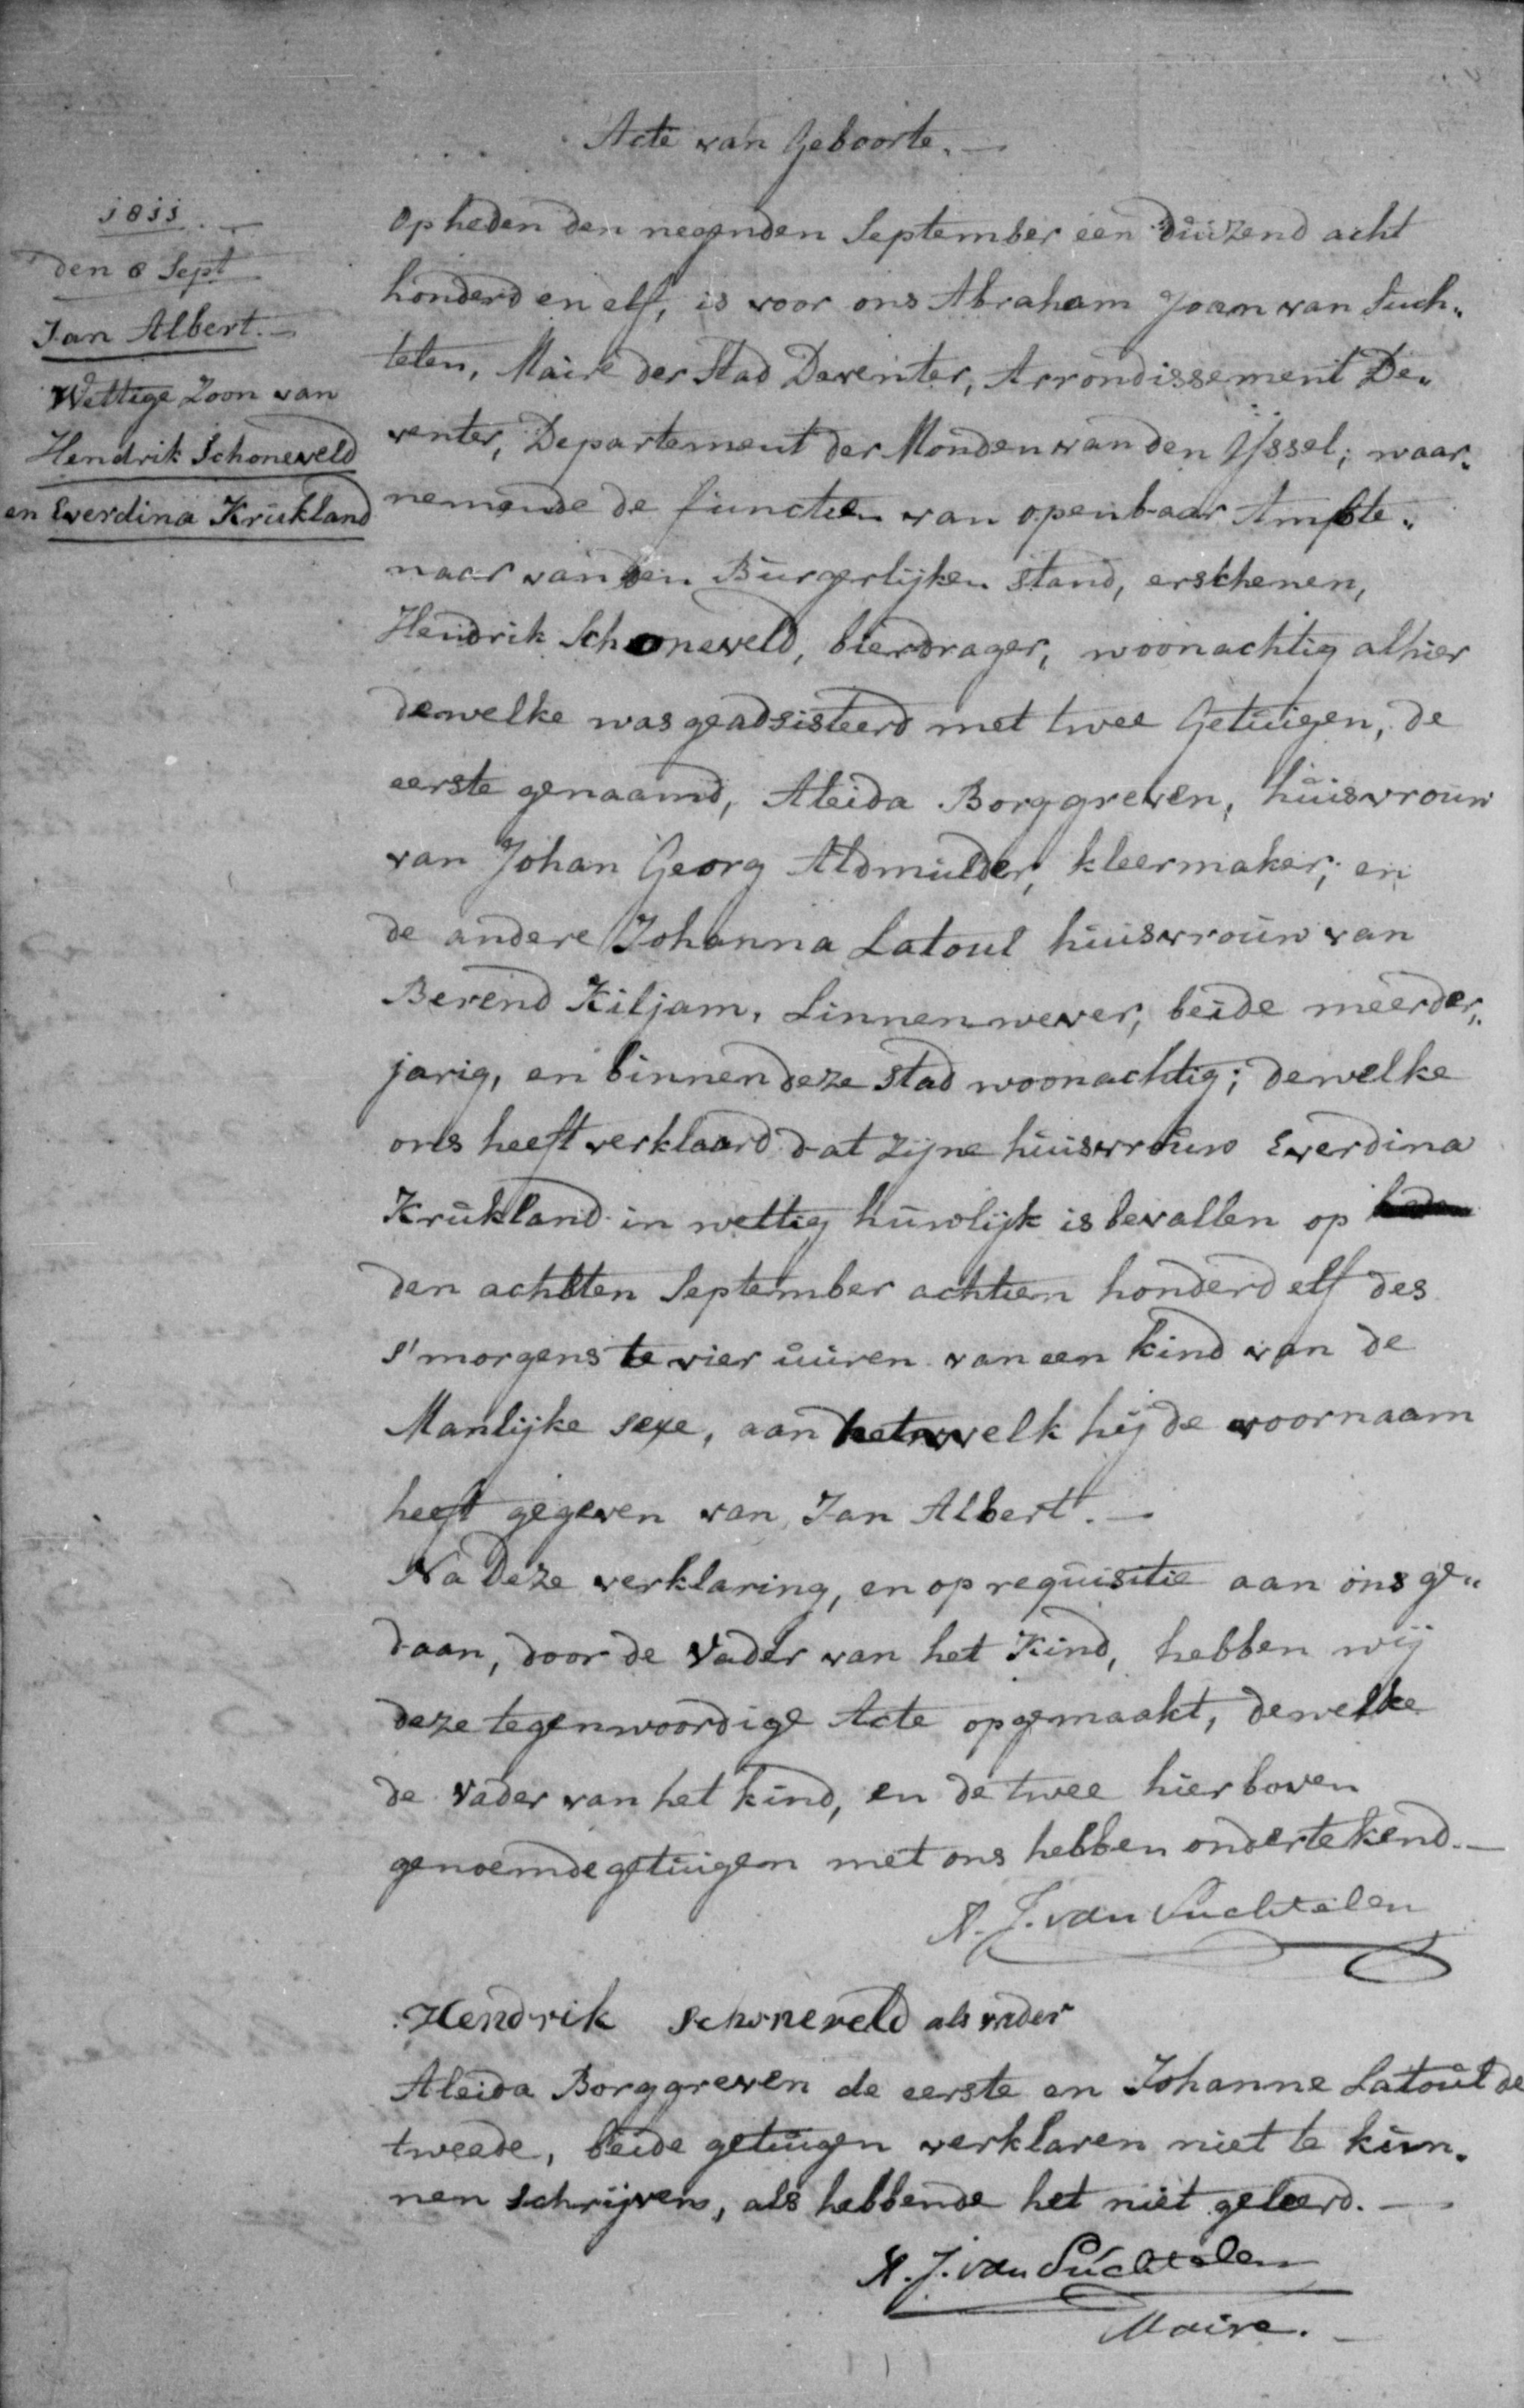 Acte van Geboorte. —
1811. —
den 8 Sept
Jan Albert. —
Wettige Zoon van
Hendrik Schoneveld
en Everdina Krukland
Op heden den negenden September een duizend acht
honderd en elf, is voor ons Abraham Joan van Such„
telen, Maire der Stad Deventer, Arrondissement De„
venter, Departement der Monden van den IJssel; waar„
nemende de functien van openbaar Ampte„
naar van den Burgerlijken stand, erschenen,
Hendrik Schoneveld, bierdrager, woonachtig alhier
dewelke was geadsisteerd met twee Getuigen, de
eerste genaamd, Aleida Borggreven, huisvrouw
van Johan Georg Aldmulder, kleermaker; en
de andere Johanna Latoul huisvrouw van
Berend Kiljam, Linnenwever, beide meerder„
jarig, en binnen deze stad woonachtig; dewelke
ons heeft verklaard dat zijne huisvrouw Everdina
Krukland in wettig huwlijk is bevallen op
den achtten September achtien honderd elf des
s'morgens te vier uuren van een kind van de
Manlijke sexe, aan hetwelk hij de voornaam
heeft gegeven van Jan Albert. —
Na deze verklaring, en op requisitie aan ons ge„
daan, door de Vader van het Kind, hebben wij
deze tegenwoordige Acte opgemaakt, dewelke
de Vader van het kind, en de twee hier boven
genoemde getuigen met ons hebben ondertekend. —
A. J. van Suchtelen
Hendrik Schoneveld als vader
Aleida Borggreven de eerste en Johanne Latoul de
tweede, beide getuigen verklaren niet te kun„
nen schrijven, als hebbende het niet geleerd. —
A. J. van Suchtelen
Maire. —